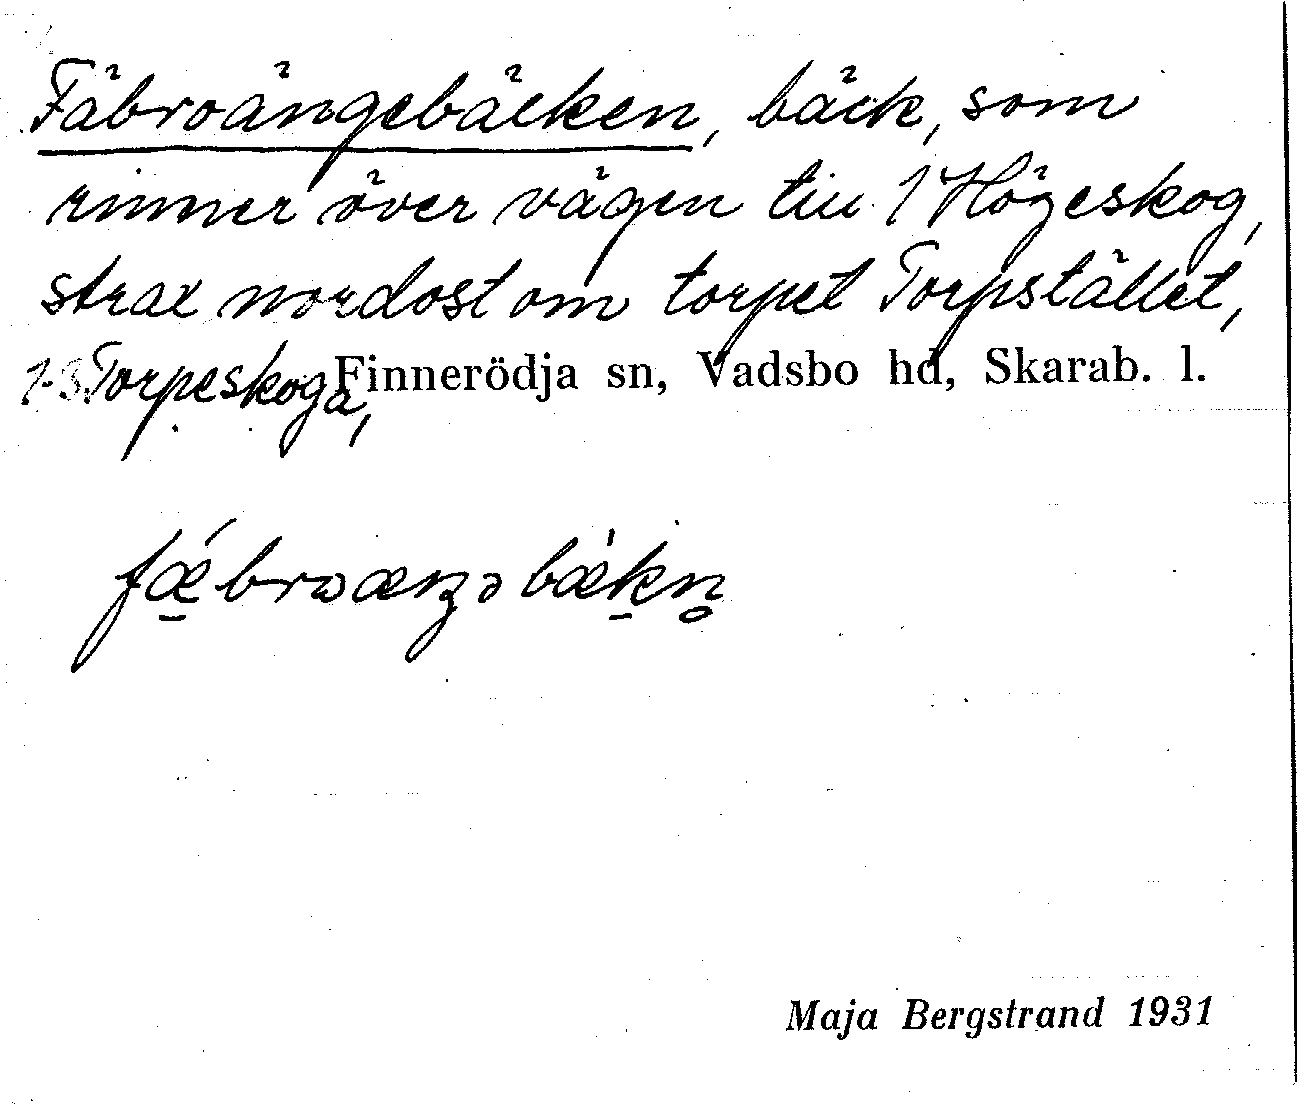 Fäbroängebäcken, bäck, som
rinner över vägen till 1 Högeskog,
strax nordost om torpet Torpstället,
1-3 Torpeskoga, Finnerödja sn, Vadsbo hd, Skarab. l.
fǽ̠brωæŋəbæ̀k̠n̥
Maja Bergstrand 1931